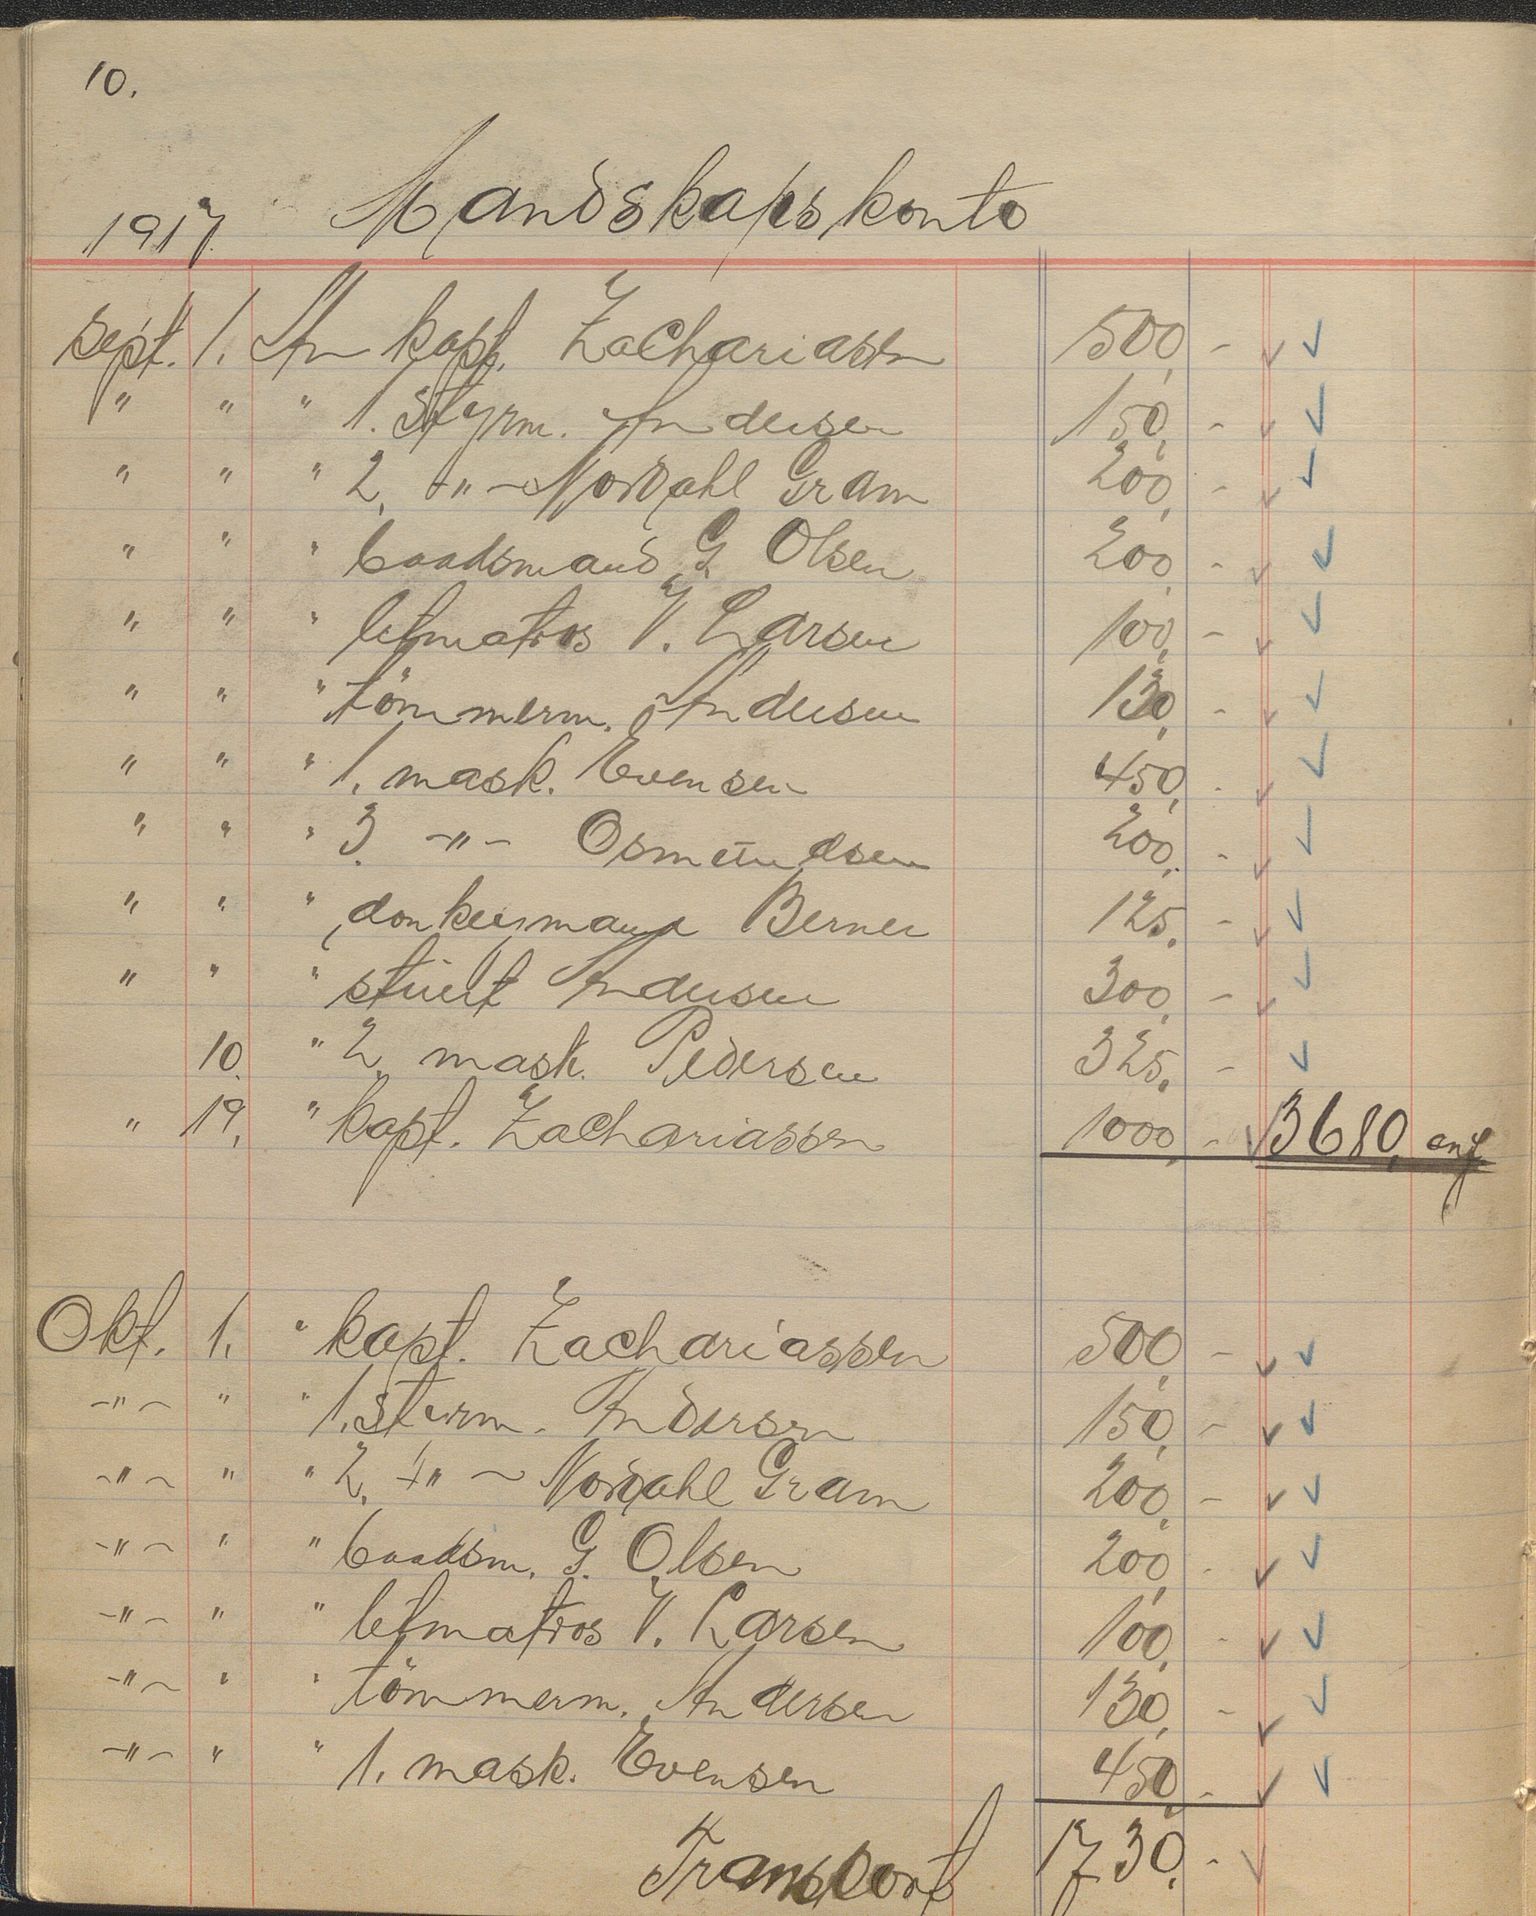 10.
1917 Mandskapskonto
Sept. 1. An kapt. Zachariassen 500, -
" " " 1. Styrm. Andersen 150, -
" " " 2. -"- Nordahl Gram 200, -
" " " baadsmand G. Olsen 200, -
" " " letmatros V. Larsen 100, -
" " " tömmerm. Andersen 130, -
" " " 1. mask. Evensen 450, -
" " " 3. -"- Osmundsen 200, -
" " " donkeymand Berner 125, -
" " " stuert Andersen 300, -
10. " 2. mask. Pedersen 325, -
" 19. " kapt. Zachariassen 1000, - 3680,
Okt. 1. " kapt. Zachariassen 500, -
-"- " " 1. styrm. Andersen 150, -
-"- " " 2. -"- Nordahl Gram 200, -
-"- " " baadsm. G. Olsen 200, -
-"- " " letmatros V. Larsen 100, -
-"- " " tömmerm. Andersen 130, -
-"- " " 1. mask. Evensen 450, -
Transport 1730, -